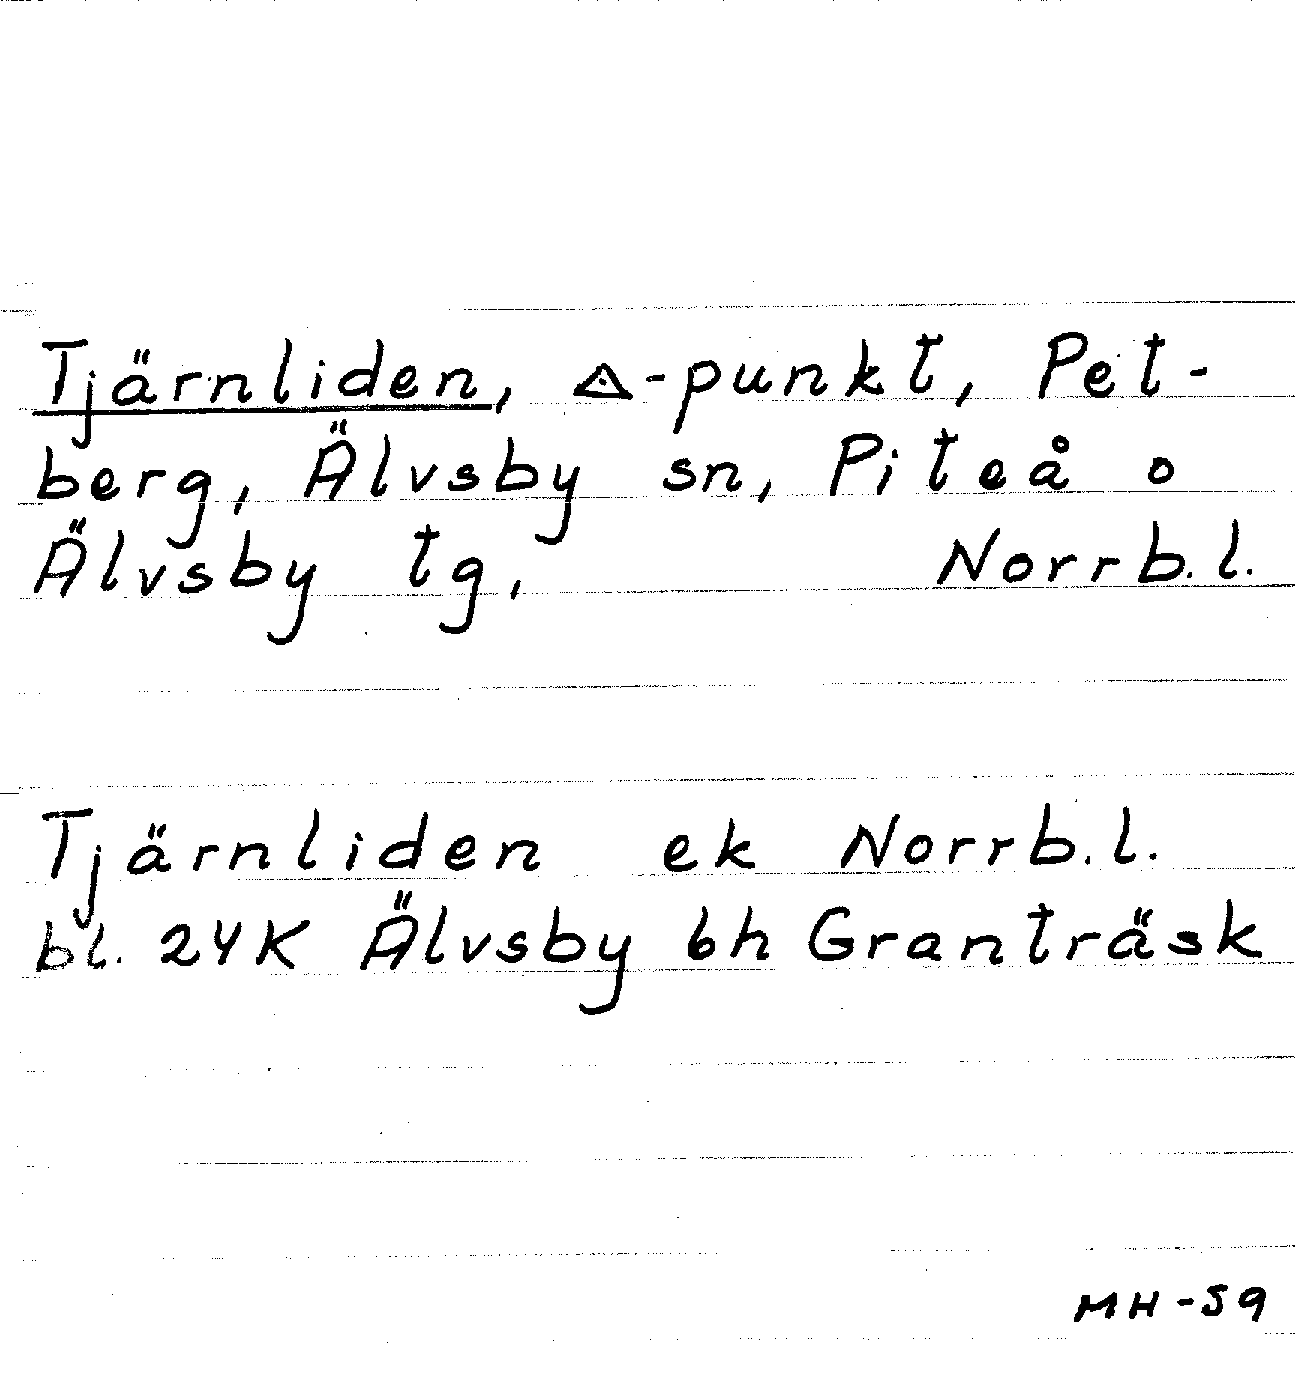 Tjärnliden, △-punkt, Pet-
berg, Älvsby sn, Piteå o
Älvsby tg, Norrb.l.
Tjärnliden ek Norrb.l.
bl. 24K Älvsby 6h Granträsk
MH-59